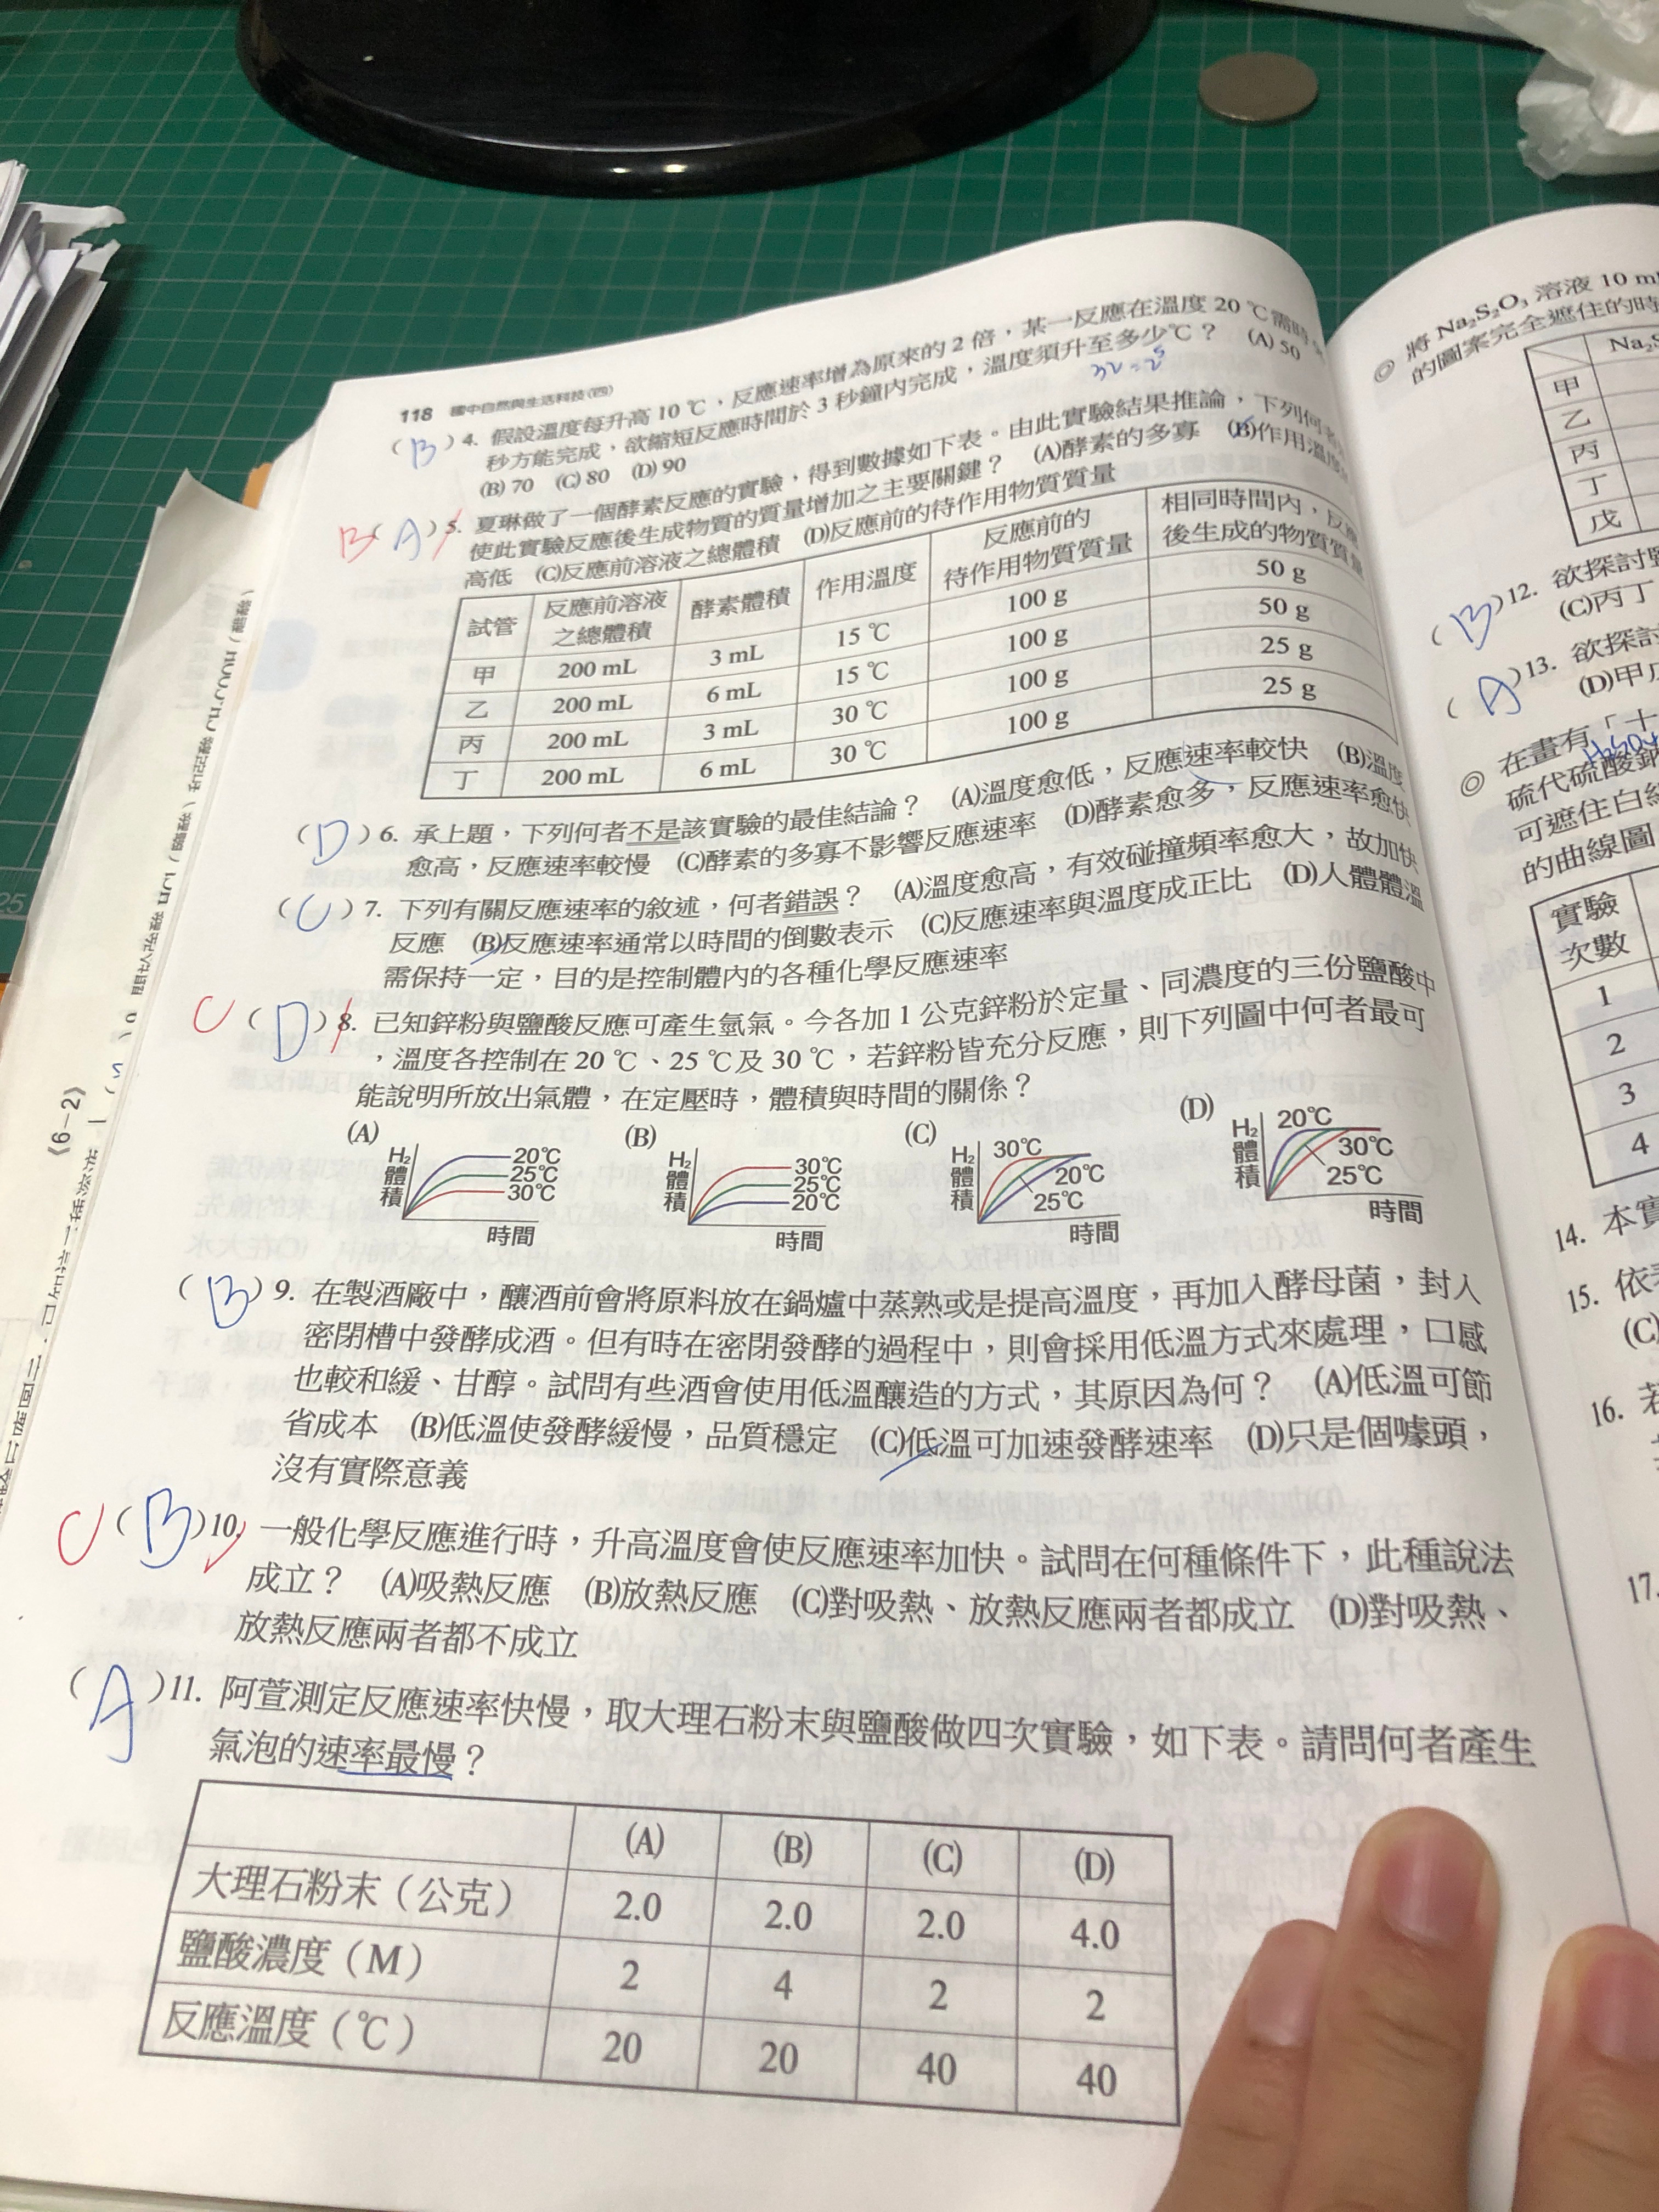 118 國中自然與生活科技(四)
(B)4. 假設溫度每升高 10 ℃,反應速率增為原來的 2 倍,某一反應在溫度 20 ℃需時
秒方能完成,欲縮短反應時間於 3 秒鐘內完成,溫度須升至多少℃? (A) 50
32=2⁵
(B) 70 (C) 80 (D) 90
B(A)5. 夏琳做了一個酵素反應的實驗,得到數據如下表。由此實驗結果推論,下列何者
使此實驗反應後生成物質的質量增加之主要關鍵? (A)酵素的多寡 (B)作用溫度
高低 (C)反應前溶液之總體積 (D)反應前的待作用物質質量
試管 反應前溶液之總體積 酵素體積 作用溫度 反應前的待作用物質質量 相同時間內,反應後生成的物質質量
甲 200 mL 3 mL 15 ℃ 100 g 50 g
乙 200 mL 6 mL 15 ℃ 100 g 50 g
丙 200 mL 3 mL 30 ℃ 100 g 25 g
丁 200 mL 6 mL 30 ℃ 100 g 25 g
(D)6. 承上題,下列何者不是該實驗的最佳結論? (A)溫度愈低,反應速率較快 (B)溫度
愈高,反應速率較慢 (C)酵素的多寡不影響反應速率 (D)酵素愈多,反應速率愈快
(C)7. 下列有關反應速率的敘述,何者錯誤? (A)溫度愈高,有效碰撞頻率愈大,故加快
反應 (B)反應速率通常以時間的倒數表示 (C)反應速率與溫度成正比 (D)人體體溫
需保持一定,目的是控制體內的各種化學反應速率
C(D)8. 已知鋅粉與鹽酸反應可產生氫氣。今各加 1 公克鋅粉於定量、同濃度的三份鹽酸中
,溫度各控制在 20 ℃、25 ℃及 30 ℃,若鋅粉皆充分反應,則下列圖中何者最可
能說明所放出氣體,在定壓時,體積與時間的關係?
(A) H₂體積 20℃ 25℃ 30℃ 時間
(B) H₂體積 30℃ 25℃ 20℃ 時間
(C) H₂體積 30℃ 20℃ 25℃ 時間
(D) H₂體積 20℃ 30℃ 25℃ 時間
(B)9. 在製酒廠中,釀酒前會將原料放在鍋爐中蒸熟或是提高溫度,再加入酵母菌,封入
密閉槽中發酵成酒。但有時在密閉發酵的過程中,則會採用低溫方式來處理,口感
也較和緩、甘醇。試問有些酒會使用低溫釀造的方式,其原因為何? (A)低溫可節
省成本 (B)低溫使發酵緩慢,品質穩定 (C)低溫可加速發酵速率 (D)只是個噱頭,
沒有實際意義
C(B)10. 一般化學反應進行時,升高溫度會使反應速率加快。試問在何種條件下,此種說法
成立? (A)吸熱反應 (B)放熱反應 (C)對吸熱、放熱反應兩者都成立 (D)對吸熱、
放熱反應兩者都不成立
(A)11. 阿萱測定反應速率快慢,取大理石粉末與鹽酸做四次實驗,如下表。請問何者產生
氣泡的速率最慢?
(A) (B) (C) (D)
大理石粉末(公克) 2.0 2.0 2.0 4.0
鹽酸濃度(M) 2 4 2 2
反應溫度(℃) 20 20 40 40
◎ 將 Na₂S₂O₃ 溶液 10 m
的圖案完全遮住的時
甲
乙
丙
丁
戊
(B)12. 欲探討
(C)丙丁
(A)13. 欲探討
(D)甲戊
◎ 在畫有「十
H₂SO₄
硫代硫酸鈉
可遮住白紙
的曲線圖
實驗次數
1
2
3
4
14. 本實
15. 依
(C)
16. 若
17.
《6-2》
25